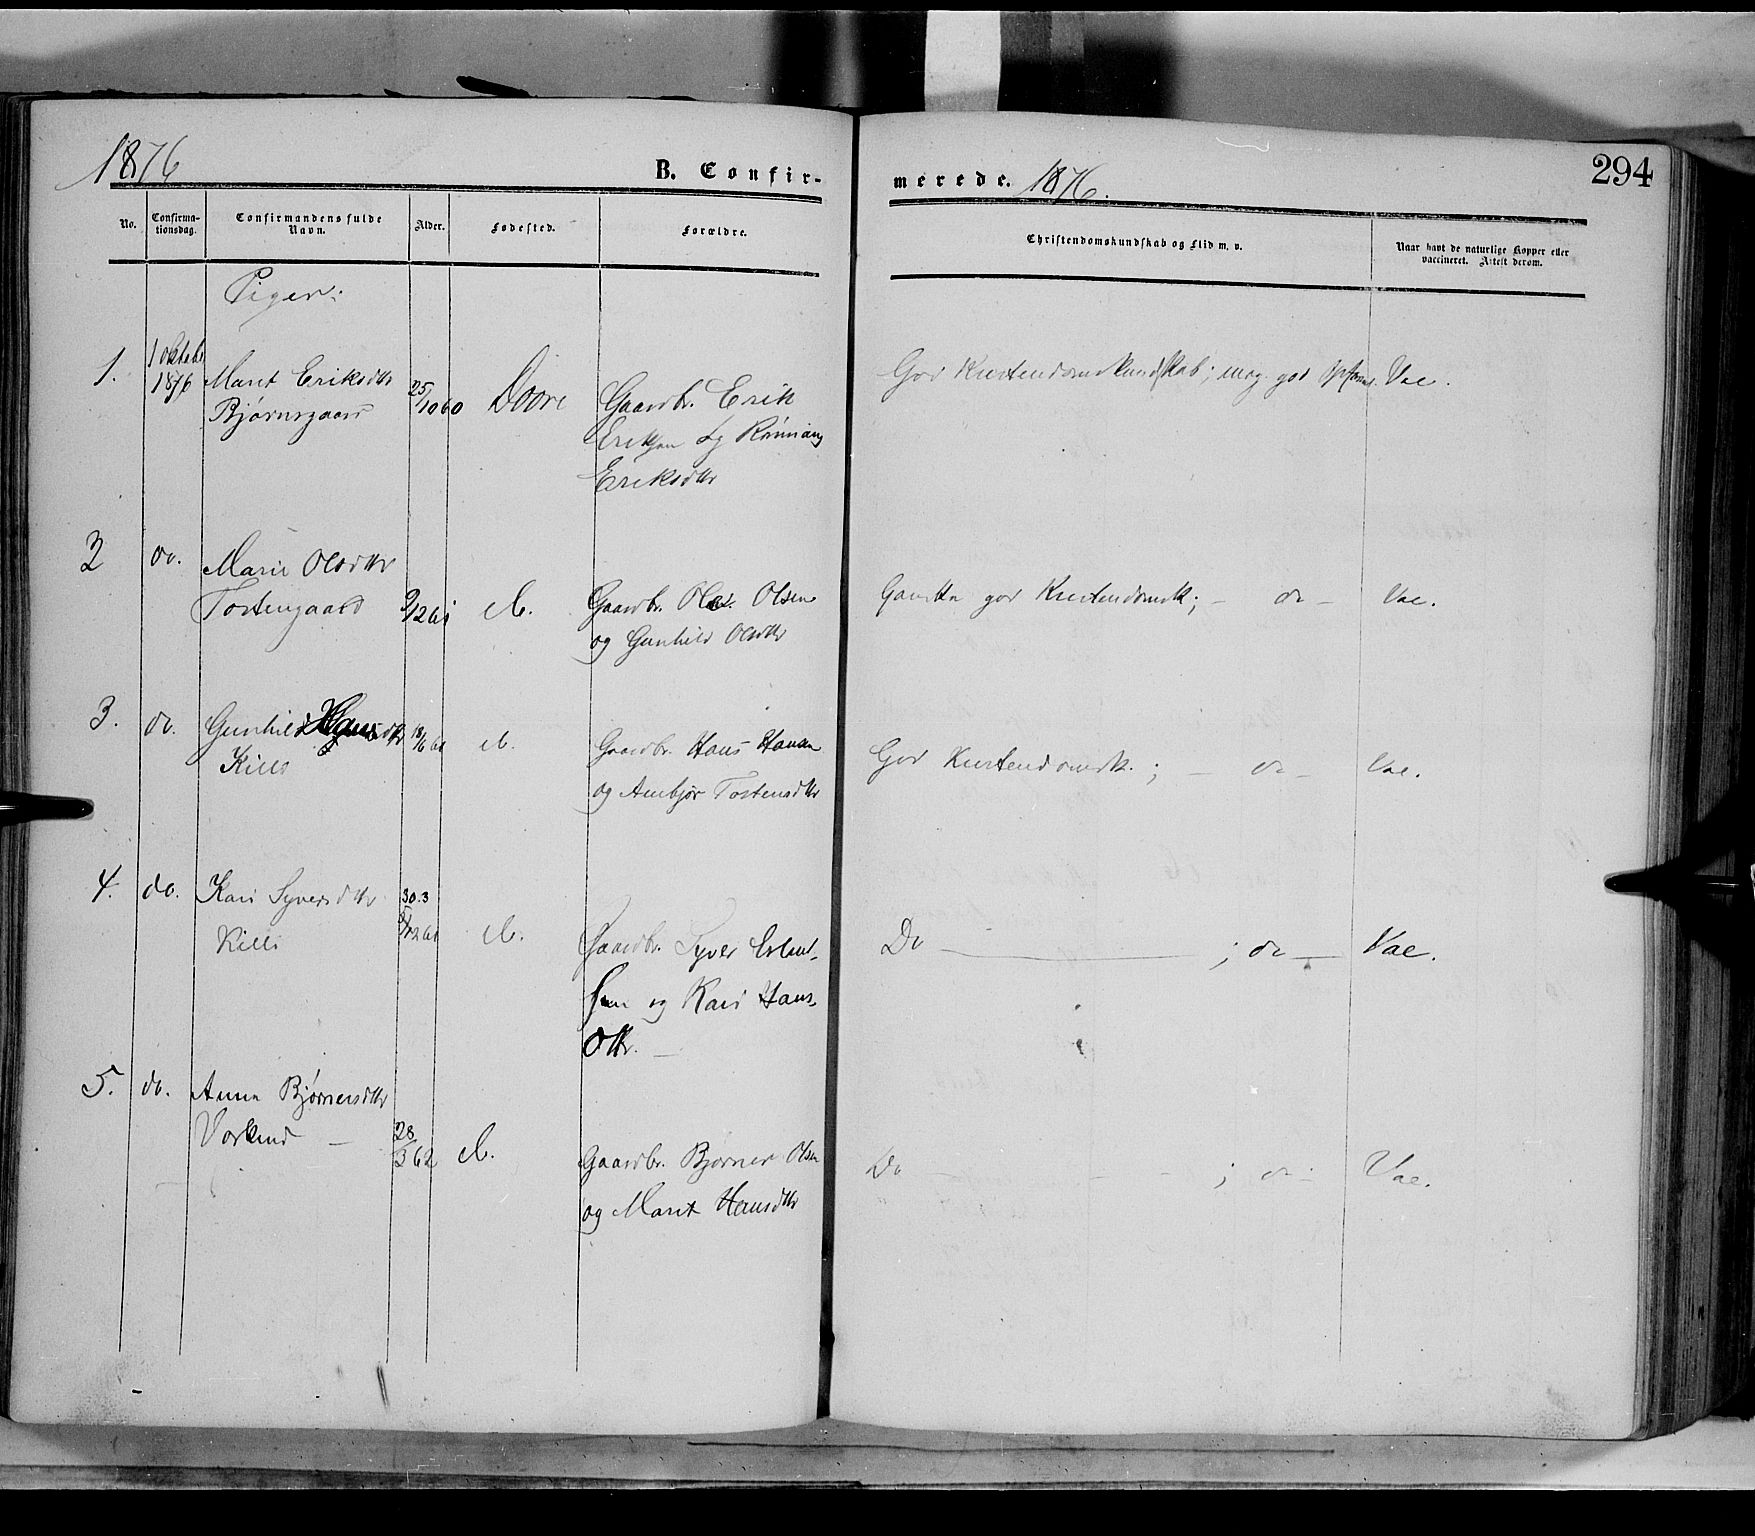 1876
B. Confir-
merede. 1876.
294
No.
Confirma-
tionsdag.
Confirmandens fulde
Navn.
Alder.
Fødested.
Forældre.
Christendomskundskab og Flid m. v.
Naar havt de naturlige Kopper eller
vaccineret. Attest derom.
Piger:
1.
1 Oktober
1876
Marit Eriksdtr
Bjørnsgaard
25/10 60
Dovre
Gaardbr. Erik
Eriksen og Rønnaug
Eriksdtr
God Kristendomskundskab; meg. god Opførs.
Vac.
2
do.
Marie Olsdtr
Tostengaard
9/12 61
do.
Gaardbr. Ole Olsen
og Gunhild Olsdtr
Ganske god Kristendomsk; - do -
Vac.
3.
do.
Gunhild Hansdtr
Killi
18/6 61
do.
Gaardbr. Hans Hansen
og Ambjør Tostensdtr
God Kristendomsk. ; - do -
Vac.
4.
do.
Kari Syversdtr
Killi
30.3
12 61
do.
Gaardbr. Syver Erland-
sen og Kari Hans-
dtr. -
Do ; do -
Vac.
5.
do.
Anne Bjørnersdtr
Vorkind -
28/3 62
do.
Gaardbr. Bjørner Olsen
og Marit Hansdtr
Do - - ; do -
Vac.